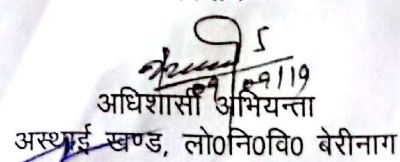 अधिशासी अभियन्ता
अस्थाई खण्ड, लो0नि0वि0 बेरीनाग